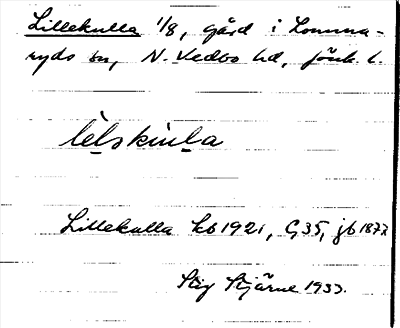 Lillekulla 1/8, gård i Lomma-
ryds sn, N. Vedbo hd, Jönk. l.
Lillekulla kb 1921, G35, jb 1877
Stig Stjärne 1935.